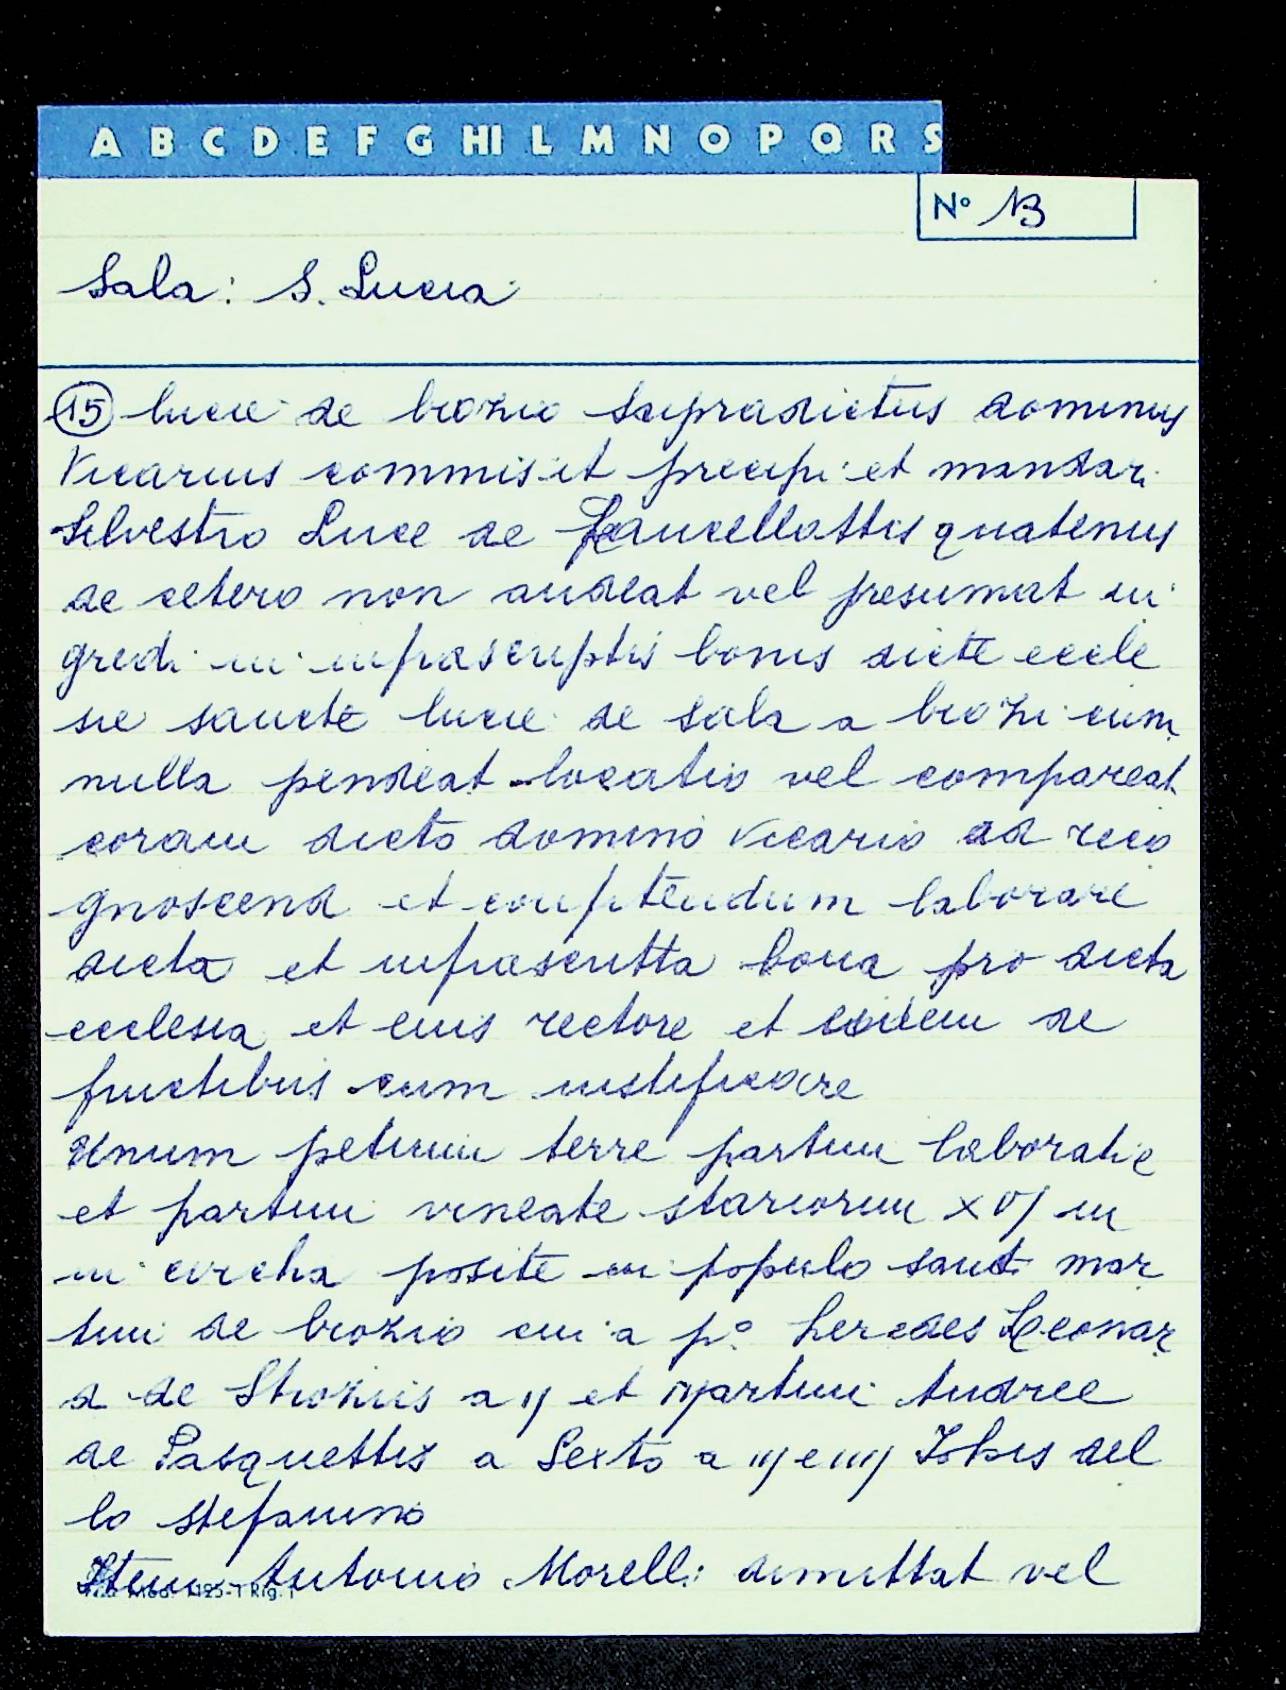 A B C D E F G HI L M N O P Q R S
N° 13
Sala: S. Lucia
15 lucie de brozio supradictus dominus
Vicarius commisit precipi et mandari
Silvestro Luce de Lancellottis quatenus
de cetero non audeat vel presumat in
gredi in infrascriptis bonis dicte eccle
sie sancte lucie de sala a brozi cum
nulla pendeat locatio vel compareat
coram dicto domino Vicario ad reco
gnoscend et laborare
dicta et infrascritta bona pro dicta
ecclesia et eius rectore et eidem de
fructibus cum iustificare
Unum petium terre partim laboratie
et partim vineate stariorum XVJ in
in circha posite in populo sancti mar
tini de brozio cui a p.° heredes Leonar
d de Stroziis a IJ et Martini Andree
de Pasquettis a Sexto a IIJ e IIIJ Johis del
lo stefanino
Item Antonio Morelli dimittat vel